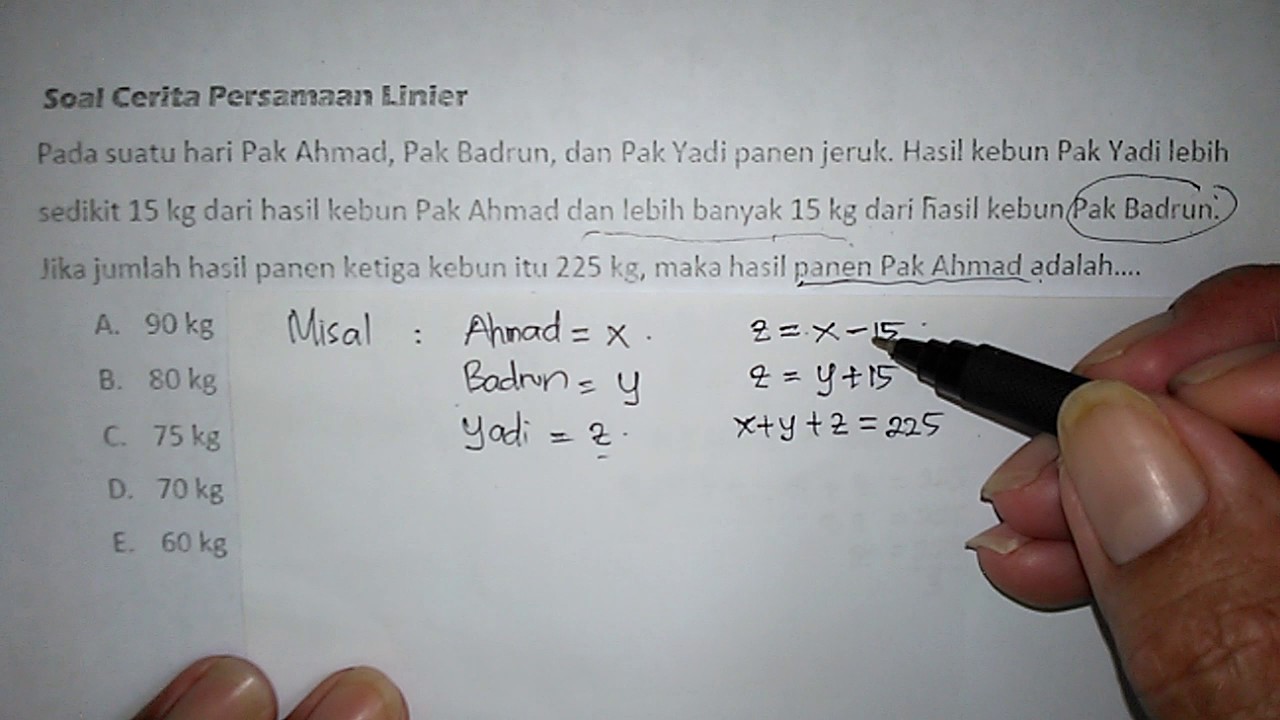 Soal Cerita Persamaan Linier
Pada suatu hari Pak Ahmad, Pak Badrun, dan Pak Yadi panen jeruk. Hasil kebun Pak Yadi lebih
sedikit 15 kg dari hasil kebun Pak Ahmad dan lebih banyak 15 kg dari hasil kebun Pak Badrun.
Jika jumlah hasil panen ketiga kebun itu 225 kg, maka hasil panen Pak Ahmad adalah....
A. 90 kg
B. 80 kg
C. 75 kg
D. 70 kg
E. 60 kg
Misal : Ahmad = x.
Badrun = y
Yadi = z.
z = x - 15
z = y + 15
x + y + z = 225